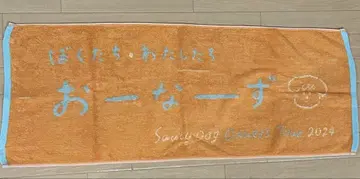 ぼくたち・わたしたち
おーなーず
Saucy Dog Owners Tour 2024